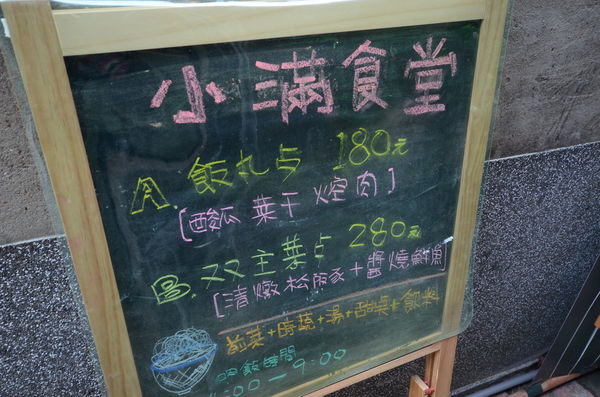 小滿食堂
A. 飯丸占 180元
[酸瓜菜干 焢肉]
B. 双主菜占 280元
[清燉松阪豕+醬燒鮮魚]
前菜+時蔬+湯+甜桌+飲料
時間
:00-9:00